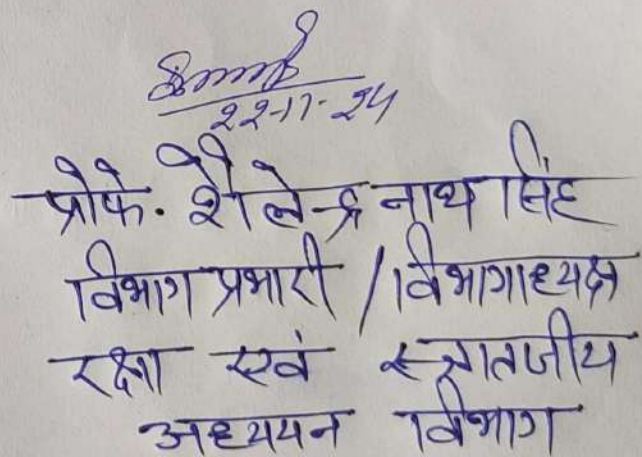 22-11-24
प्रोफे. शैलेन्द्र नाथ सिंह
विभाग प्रभारी / विभागाध्यक्ष
रक्षा एवं स्त्रातजीय
अध्ययन विभाग